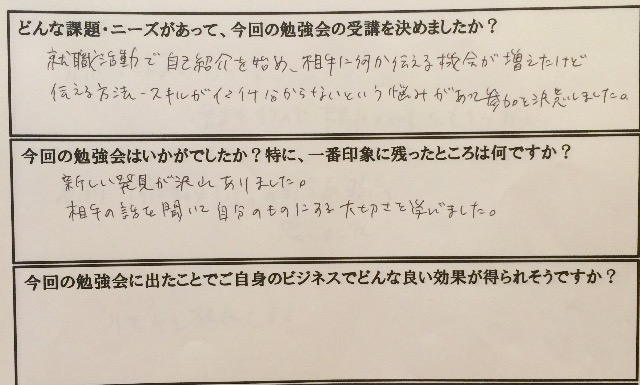 どんな課題・ニーズがあって、今回の勉強会の受講を決めましたか？
就職活動で自己紹介を始め、相手に何か伝える機会が増えたけど
伝える方法・スキルがイマイチ分からないという悩みがあって参加を決意しました。
今回の勉強会はいかがでしたか？特に、一番印象に残ったところは何ですか？
新しい発見が沢山ありました。
相手の話を聞いて自分のものにする大切さを学びました。
今回の勉強会に出たことでご自身のビジネスでどんな良い効果が得られそうですか？